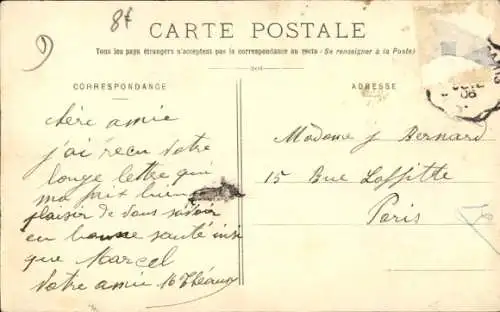 9
8f
CARTE POSTALE
Tous les pays étrangers n'acceptent pas la correspondance au recto - (Se renseigner à la Poste)
CORRESPONDANCE
chère amie
j'ai reçu votre
longe lettre qui
ma fait bien
plaisir de vous savoir
en bonne santé insi
que Marcel
Votre amie
ADRESSE
Madame J Bernard
15 Rue Laffitte
Paris
06